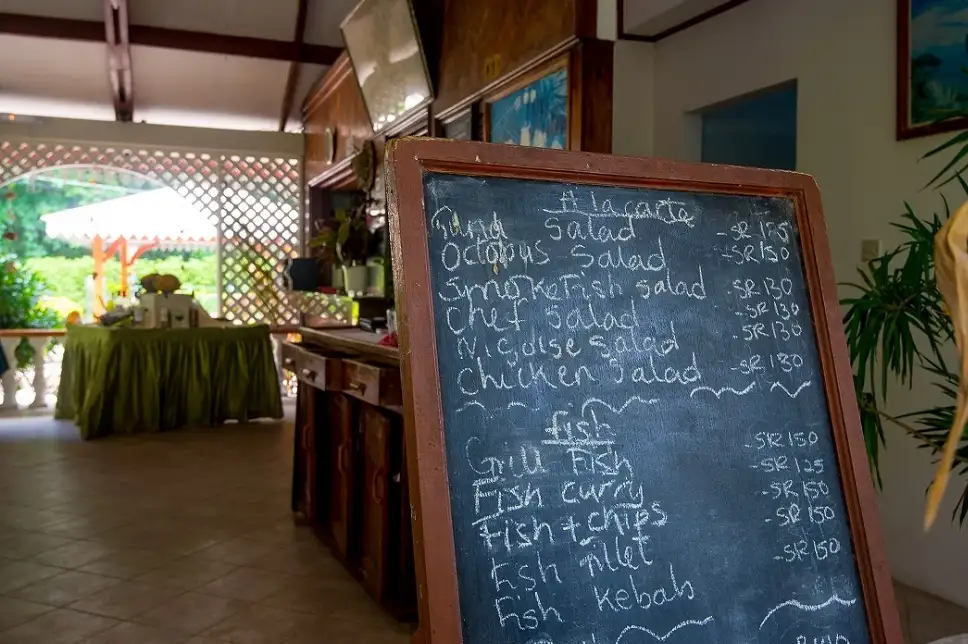 A la carte
Tuna Salad -SR 125
Octopus Salad -SR150
Smoke Fish salad -SR 130
Chef Salad -SR 130
Nigoise salad -SR130
Chicken Salad -SR130
fish
Grill Fish -SR150
Fish curry -SR 125
Fish + chips -SR150
Fish fillet -SR150
Fish Kebab -SR150